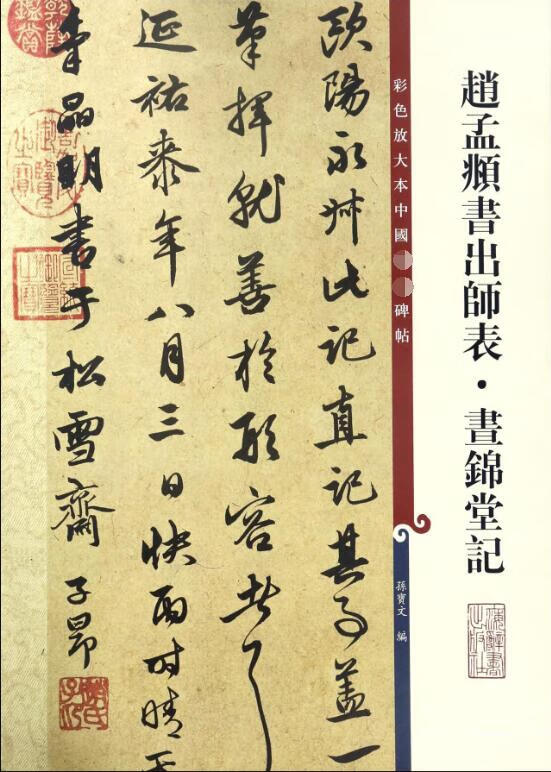 趙孟頫書出師表·晝錦堂記
彩色放大本中國
碑帖
孫寶文 編
歐陽永叔此記直記其事蓋一
筆揮就善於形容者
延祐柒年八月三日快雨時晴天
氣晶明書于松雪齋 子昂
趙氏子昂